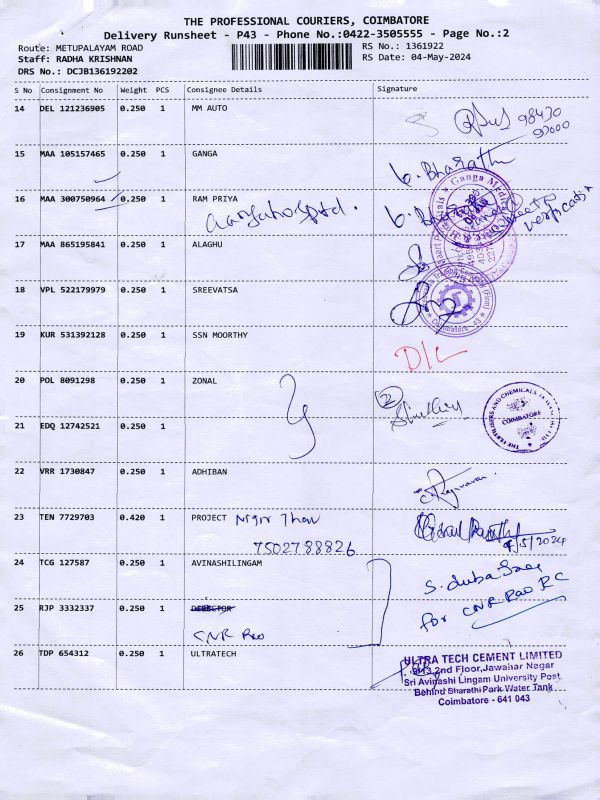 THE PROFESSIONAL COURIERS, COIMBATORE
Delivery Runsheet - P43 - Phone No.:0422-3505555 - Page No.:2
Route: METUPALAYAM ROAD
RS No.: 1361922
Staff: RADHA KRISHNAN
RS Date: 04-May-2024
DRS No.: DCJB136192202
S No Consignment No Weight PCS Consignee Details Signature
14 DEL 121236905 0.250 1 MM AUTO
98430
15 MAA 105157465 0.250 1 GANGA
b. Bharathi
16 MAA 300750964 0.250 1 RAM PRIYA
17 MAA 865195841 0.250 1 ALAGHU
18 VPL 522179979 0.250 1 SREEVATSA
Coimbatore
19 KUR 531392128 0.250 1 SSN MOORTHY
D/L
20 POL 8091298 0.250 1 ZONAL
2
COIMBATORE
21 EDQ 12742521 0.250 1
22 VRR 1730847 0.250 1 ADHIBAN
23 TEN 7729703 0.420 1 PROJECT
7502788826
4/5/2024
24 TCG 127587 0.250 1 AVINASHILINGAM
25 RJP 3332337 0.250 1 DIRECTOR
for CNR Rao RC
CNR Rao
26 TDP 654312 0.250 1 ULTRATECH
ULTRA TECH CEMENT LIMITED
2nd Floor,Jawahar Nagar
Sri Avinashi Lingam University Post
Behind Bharathi Park Water Tank
Coimbatore - 641 043